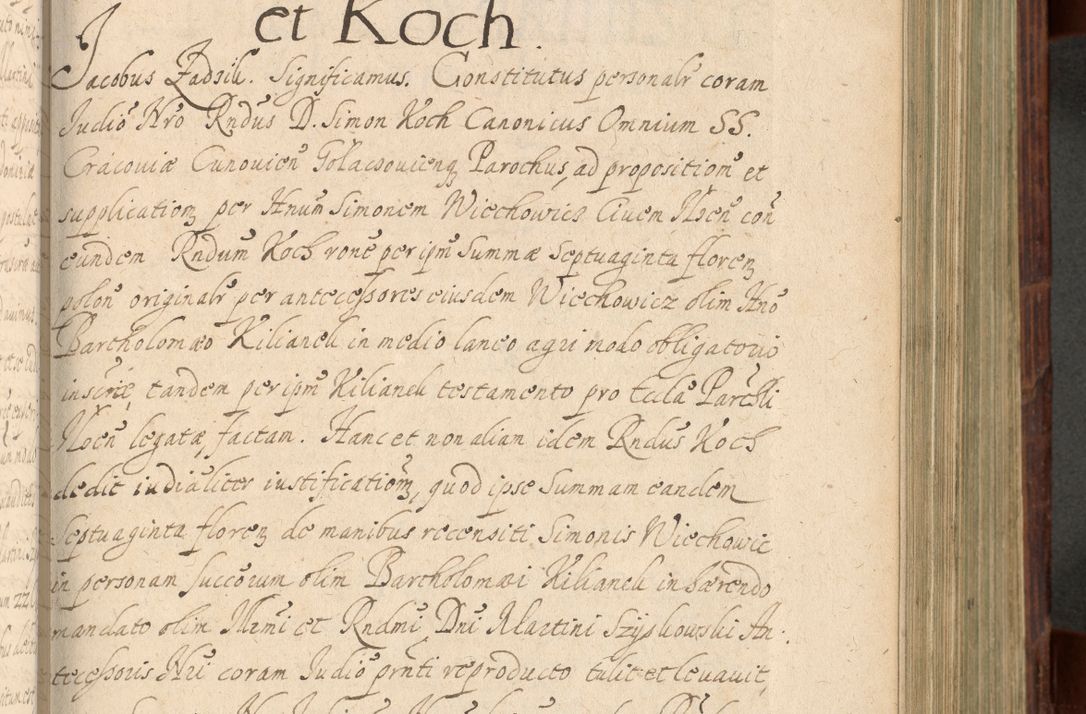 et Koch.
Jacobus Zadzik. Significamus. Constitutus personalr coram
Iudio Nro Rndus D. Simon Koch Canonicus Omnium SS.
Cracouiæ Cunouien Golacsouienq Parochus, ad proposition et
supplication per Hnum Simonem Wiechowicz Ciuem Nsen con
eundem Rndum Koch rone per ipm Summæ Septuaginta floren
polon originalr per antecessores eiusdem Wiechowicz olim Hno
Bartholomæo Kilianek in medio laneo agri modo obligatorio
inscrię tandem per ipm Kilianek testamento pro Eccla Parchli
Nsen legatæ factam. Hanc et non aliam idem Rndus Koch
dedit iudialiter iustification, quod ipse Summam eandem
Septuaginta floren de manibus recensiti Simonis Wiechowic
in personam succorum olim Bartholomæi Kilianek inhærendo
mandato olim Illrmi et Rndmi Dni Martini Szyskowski An
tecessoris Nri coram Iudio prnti reproducto tulit et leuauit,